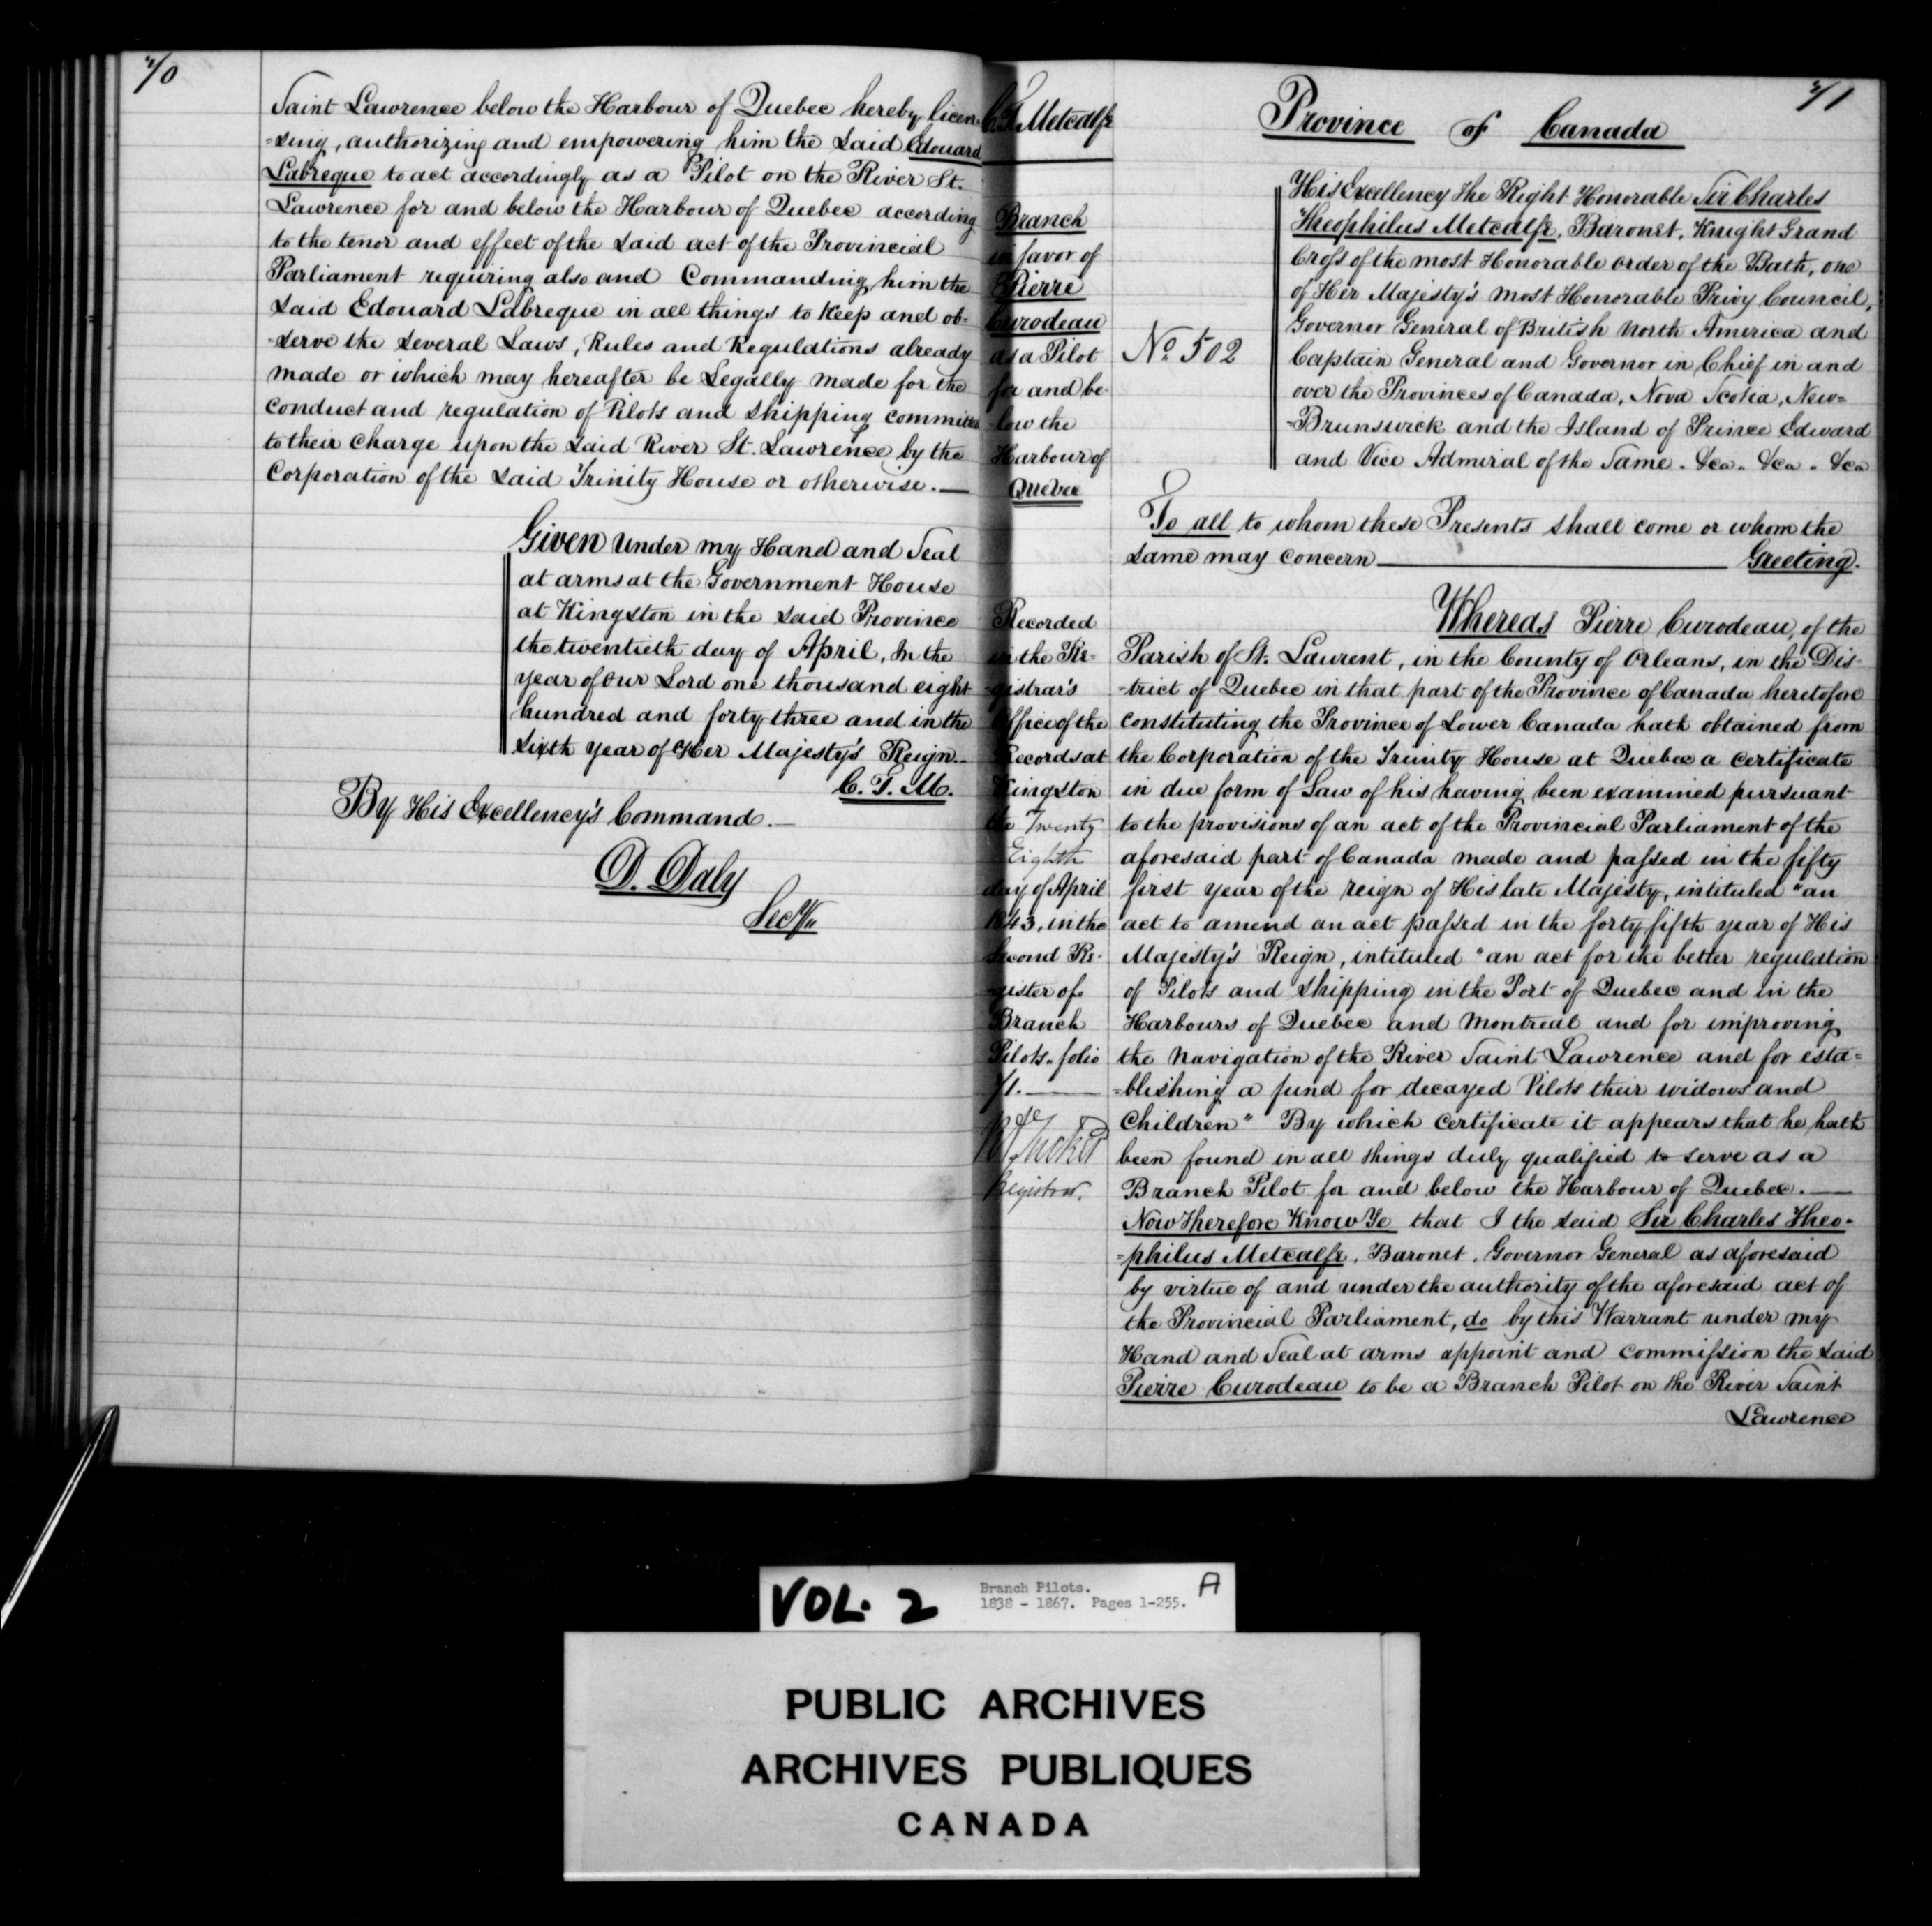 70
Saint Lawrence below the Harbour of Quebec hereby licen-
-sing, authorizing and empowering him the said Edouard
Labreque to act accordingly as a Pilot on the River St.
Lawrence for and below the Harbour of Quebec according
to the tenor and effect of the said act of the Provincial
Parliament requiring also and Commanding him the
said Edouard Labreque in all things to Keep and ob-
-serve the several Laws, Rules and Regulations already
made or which may hereafter be Legally made for the
conduct and regulation of Pilots and shipping committed
to their charge upon the said River St. Lawrence by the
Corporation of the said Trinity House or otherwise.—
Given under my Hand and Seal
at arms at the Government House
at Kingston in the said Province
the twentieth day of April, In the
year of our Lord one thousand eight
hundred and forty three and in the
sixth year of Her Majesty's Reign.-
C. T. M.
By His Excellency's Command.—
D. Daly
Secy.
71
C. T. Metcalfe
Branch
in favor of
Pierre
Curodeau
as a Pilot
for and be-
-low the
Harbour of
Quebec
Recorded
in the Re-
-gistrar's
Office of the
Records at
Kingston
the Twenty
Eighth
day of April
1843, in the
Second Re-
-gister of
Branch
Pilots. folio
71.—
R A Tucker
Registrar.
Province of Canada
No. 502
His Excellency the Right Honorable Sir Charles
Theophilus Metcalfe, Baronet, Knight Grand
Cross of the most Honorable order of the Bath, one
of Her Majesty's most Honorable Privy Council,
Governor General of British North America and
Captain General and Governor in Chief in and
over the Provinces of Canada, Nova Scotia, New=
-Brunswick and the Island of Prince Edward
and Vice Admiral of the Same. &ca. &ca. &ca
To all to whom these Presents shall come or whom the
same may concern — Greeting.
Whereas Pierre Curodeau, of the
Parish of St. Laurent, in the County of Orleans, in the Dis-
-trict of Quebec in that part of the Province of Canada heretofore
constituting the Province of Lower Canada hath obtained from
the Corporation of the Trinity House at Quebec a certificate
in due form of Law of his having been examined pursuant
to the provisions of an act of the Provincial Parliament of the
aforesaid part of Canada made and passed in the fifty
first year of the reign of His late Majesty, intituled "an
act to amend an act passed in the forty fifth year of His
Majesty's Reign, intituled "an act for the better regulation
of Pilots and shipping in the Port of Quebec and in the
Harbours of Quebec and Montreal and for improving
the Navigation of the River Saint Lawrence and for esta=
-blishing a fund for decayed Pilots their widows and
Children" By which certificate it appears that he hath
been found in all things duly qualified to serve as a
Branch Pilot for and below the Harbour of Quebec.—
Now Therefore Know Ye that I the said Sir Charles Theo-
-philus Metcalfe, Baronet, Governor General as aforesaid
by virtue of and under the authority of the aforesaid act of
the Provincial Parliament, do by this Warrant under my
Hand and Seal at arms appoint and commission the said
Pierre Curodeau to be a Branch Pilot on the River Saint
Lawrence
VOL. 2
Branch Pilots.
1838 - 1867. Pages 1-255.
A
PUBLIC ARCHIVES
ARCHIVES PUBLIQUES
CANADA